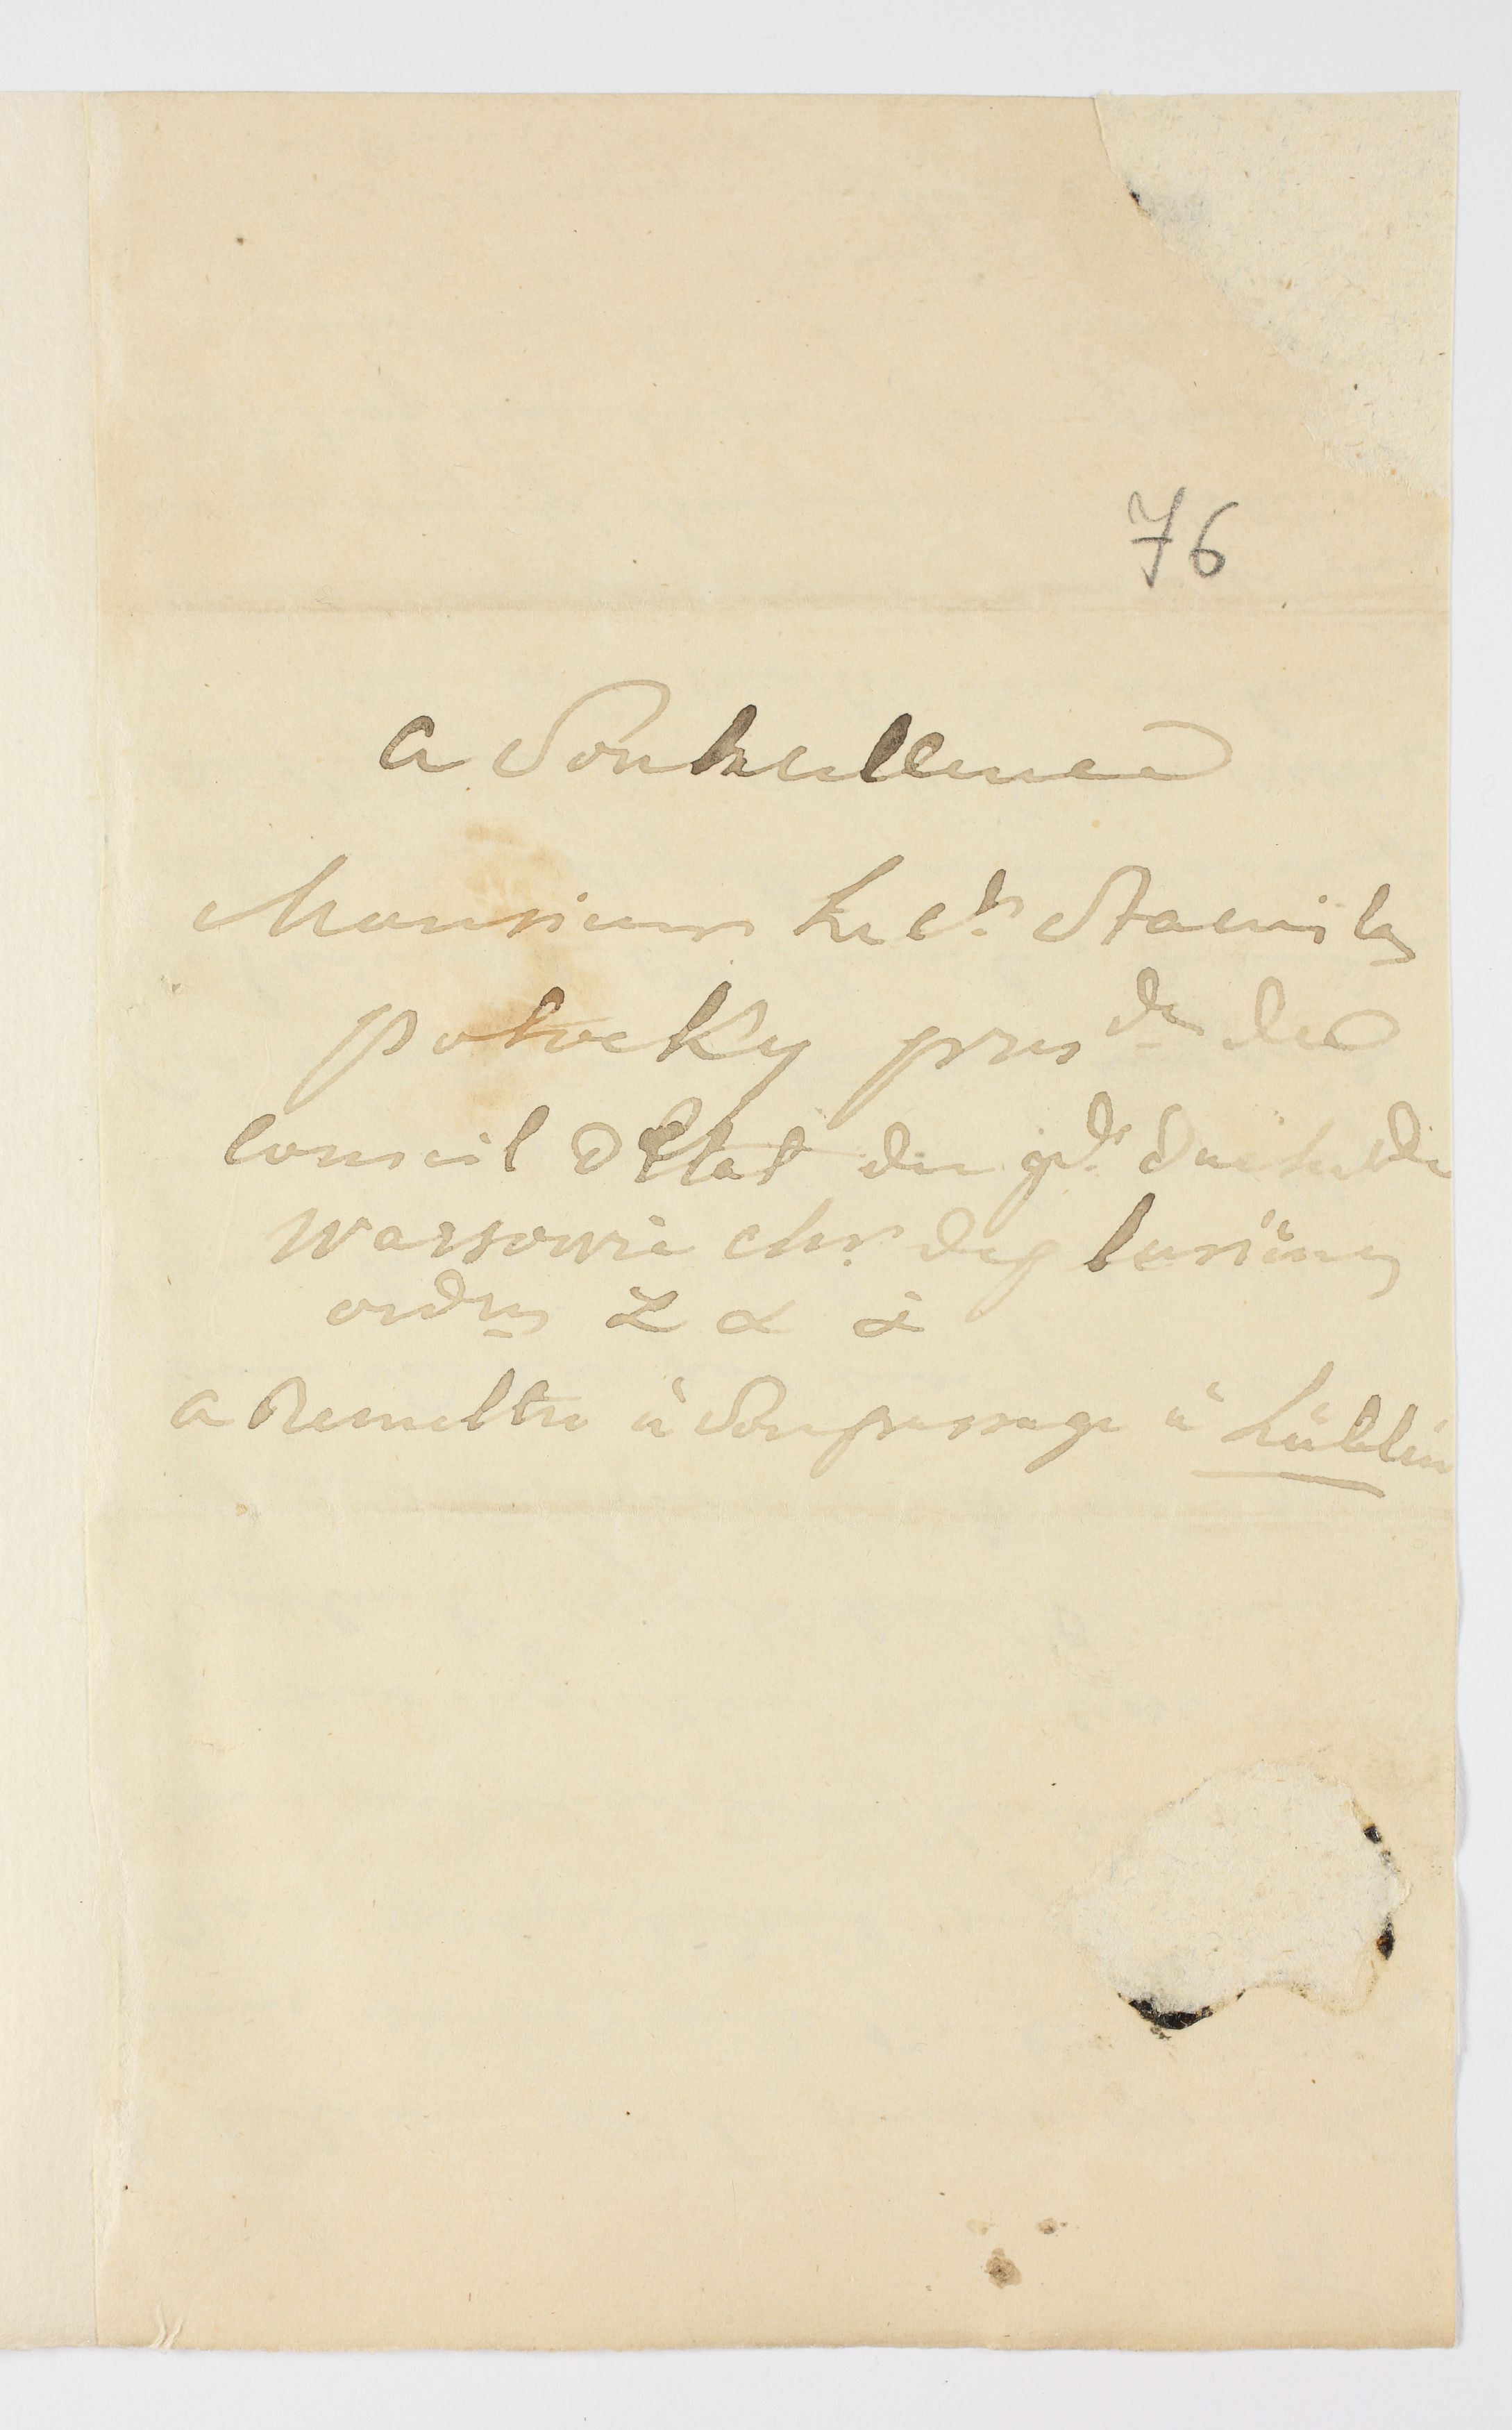 76
a Son Excellence
Monsieur Le Cte Stanislas
potocky presdt du
Conseil d'Etat du gd. duché de
Warsowie chr. de plusieurs
ordres & & &
a Remettre à Son passage à Lublin